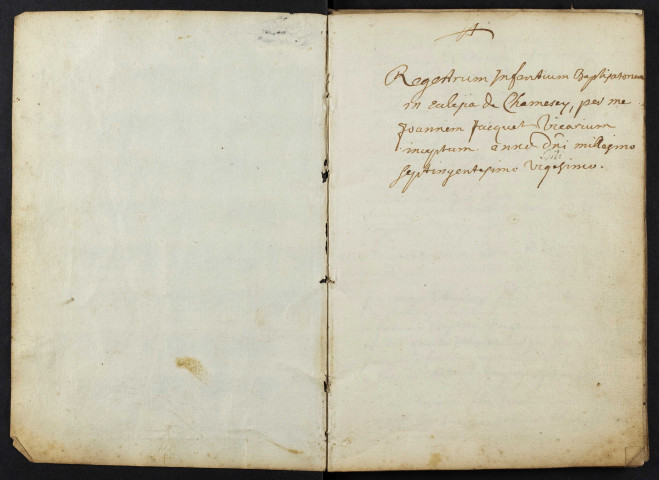 Regestrum Infantium Baptisatorum
in eclesia de Chamesey, per me
Joannem Jacquet Vicarium
inceptum anno Dni millesimo
septingentesimo vigesimo.